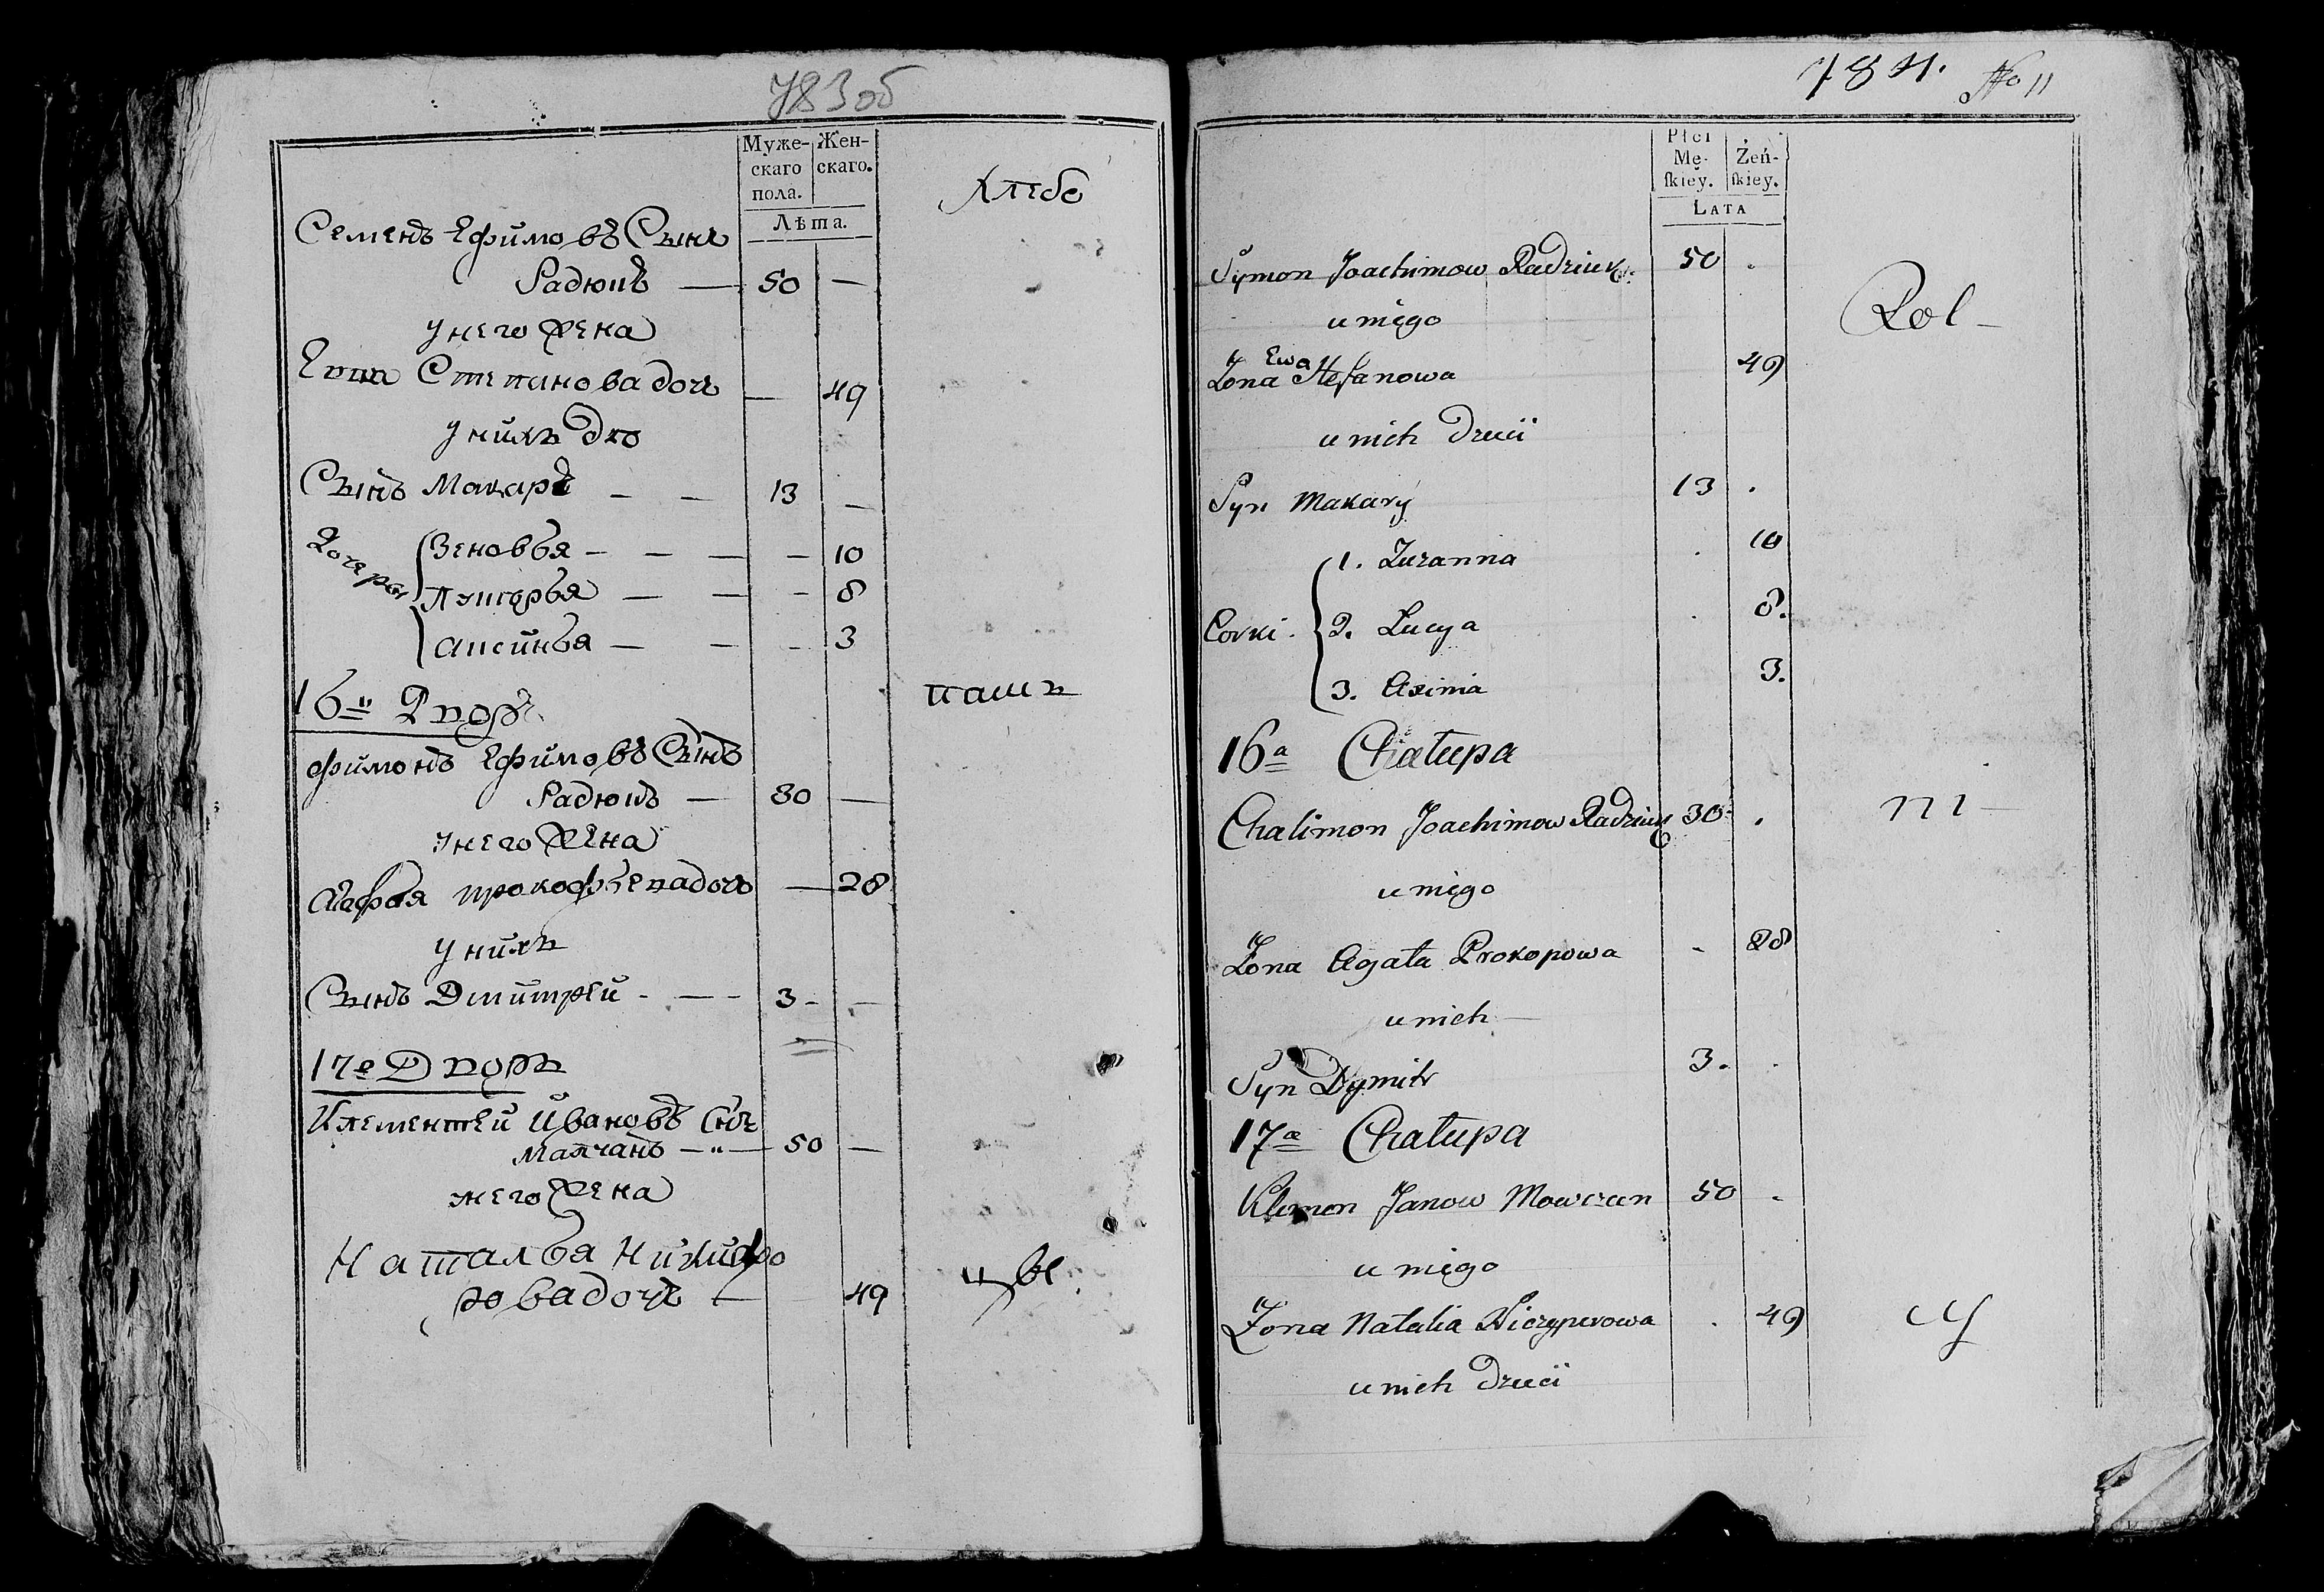 783об
Муже- Жен-
скаго скаго.
пола.
Лѣта.
Хлебо
Семенъ Ефимовъ Сынъ
Радюкъ — 50 —
У него жена
Евва Степанова дочь — 49
У нихъ
Сынъ Макаръ — — 13 —
Дочери Зеновья — — — — 10
Лукерья — — — 8
Аксинья — — — 3
16й Дворъ
пашъ
Филмонъ Ефимовъ Сынъ
Радюкъ — 30 —
У него жена
Агафья Прокофьева дочь — 28
У нихъ
Сынъ Дмитрей - — - 3 - —
17й Дворъ
Клементей Ивановъ Снъ
Малчанъ — " — 50 —
него жена
Наталья Никифо
рова дочь — 49
цы
784. No 11
Płci
Mę- Żeń-
ſkiey. ſkiey.
LATA
Symon Joachimow Radziuk. 50 .
u niego
Rol -
Żona Ewa Stefanowa 49
u nich Dzieci
Syn Makary 13 .
1. Zuzanna . 10
Corki. 2. Łucya . 8.
3. Axinia 3.
16a Chałupa
Chalimon Joachimow Radziuk 30 .
ni —
u niego
Żona Agata Prokopowa - 28
u nich —
Syn Dymitr 3. .
17a Chałupa
Klimon Janow Mowczan 50 .
u niego
Żona Natalia Niczyperowa . 49
cy
u nich Dzieci